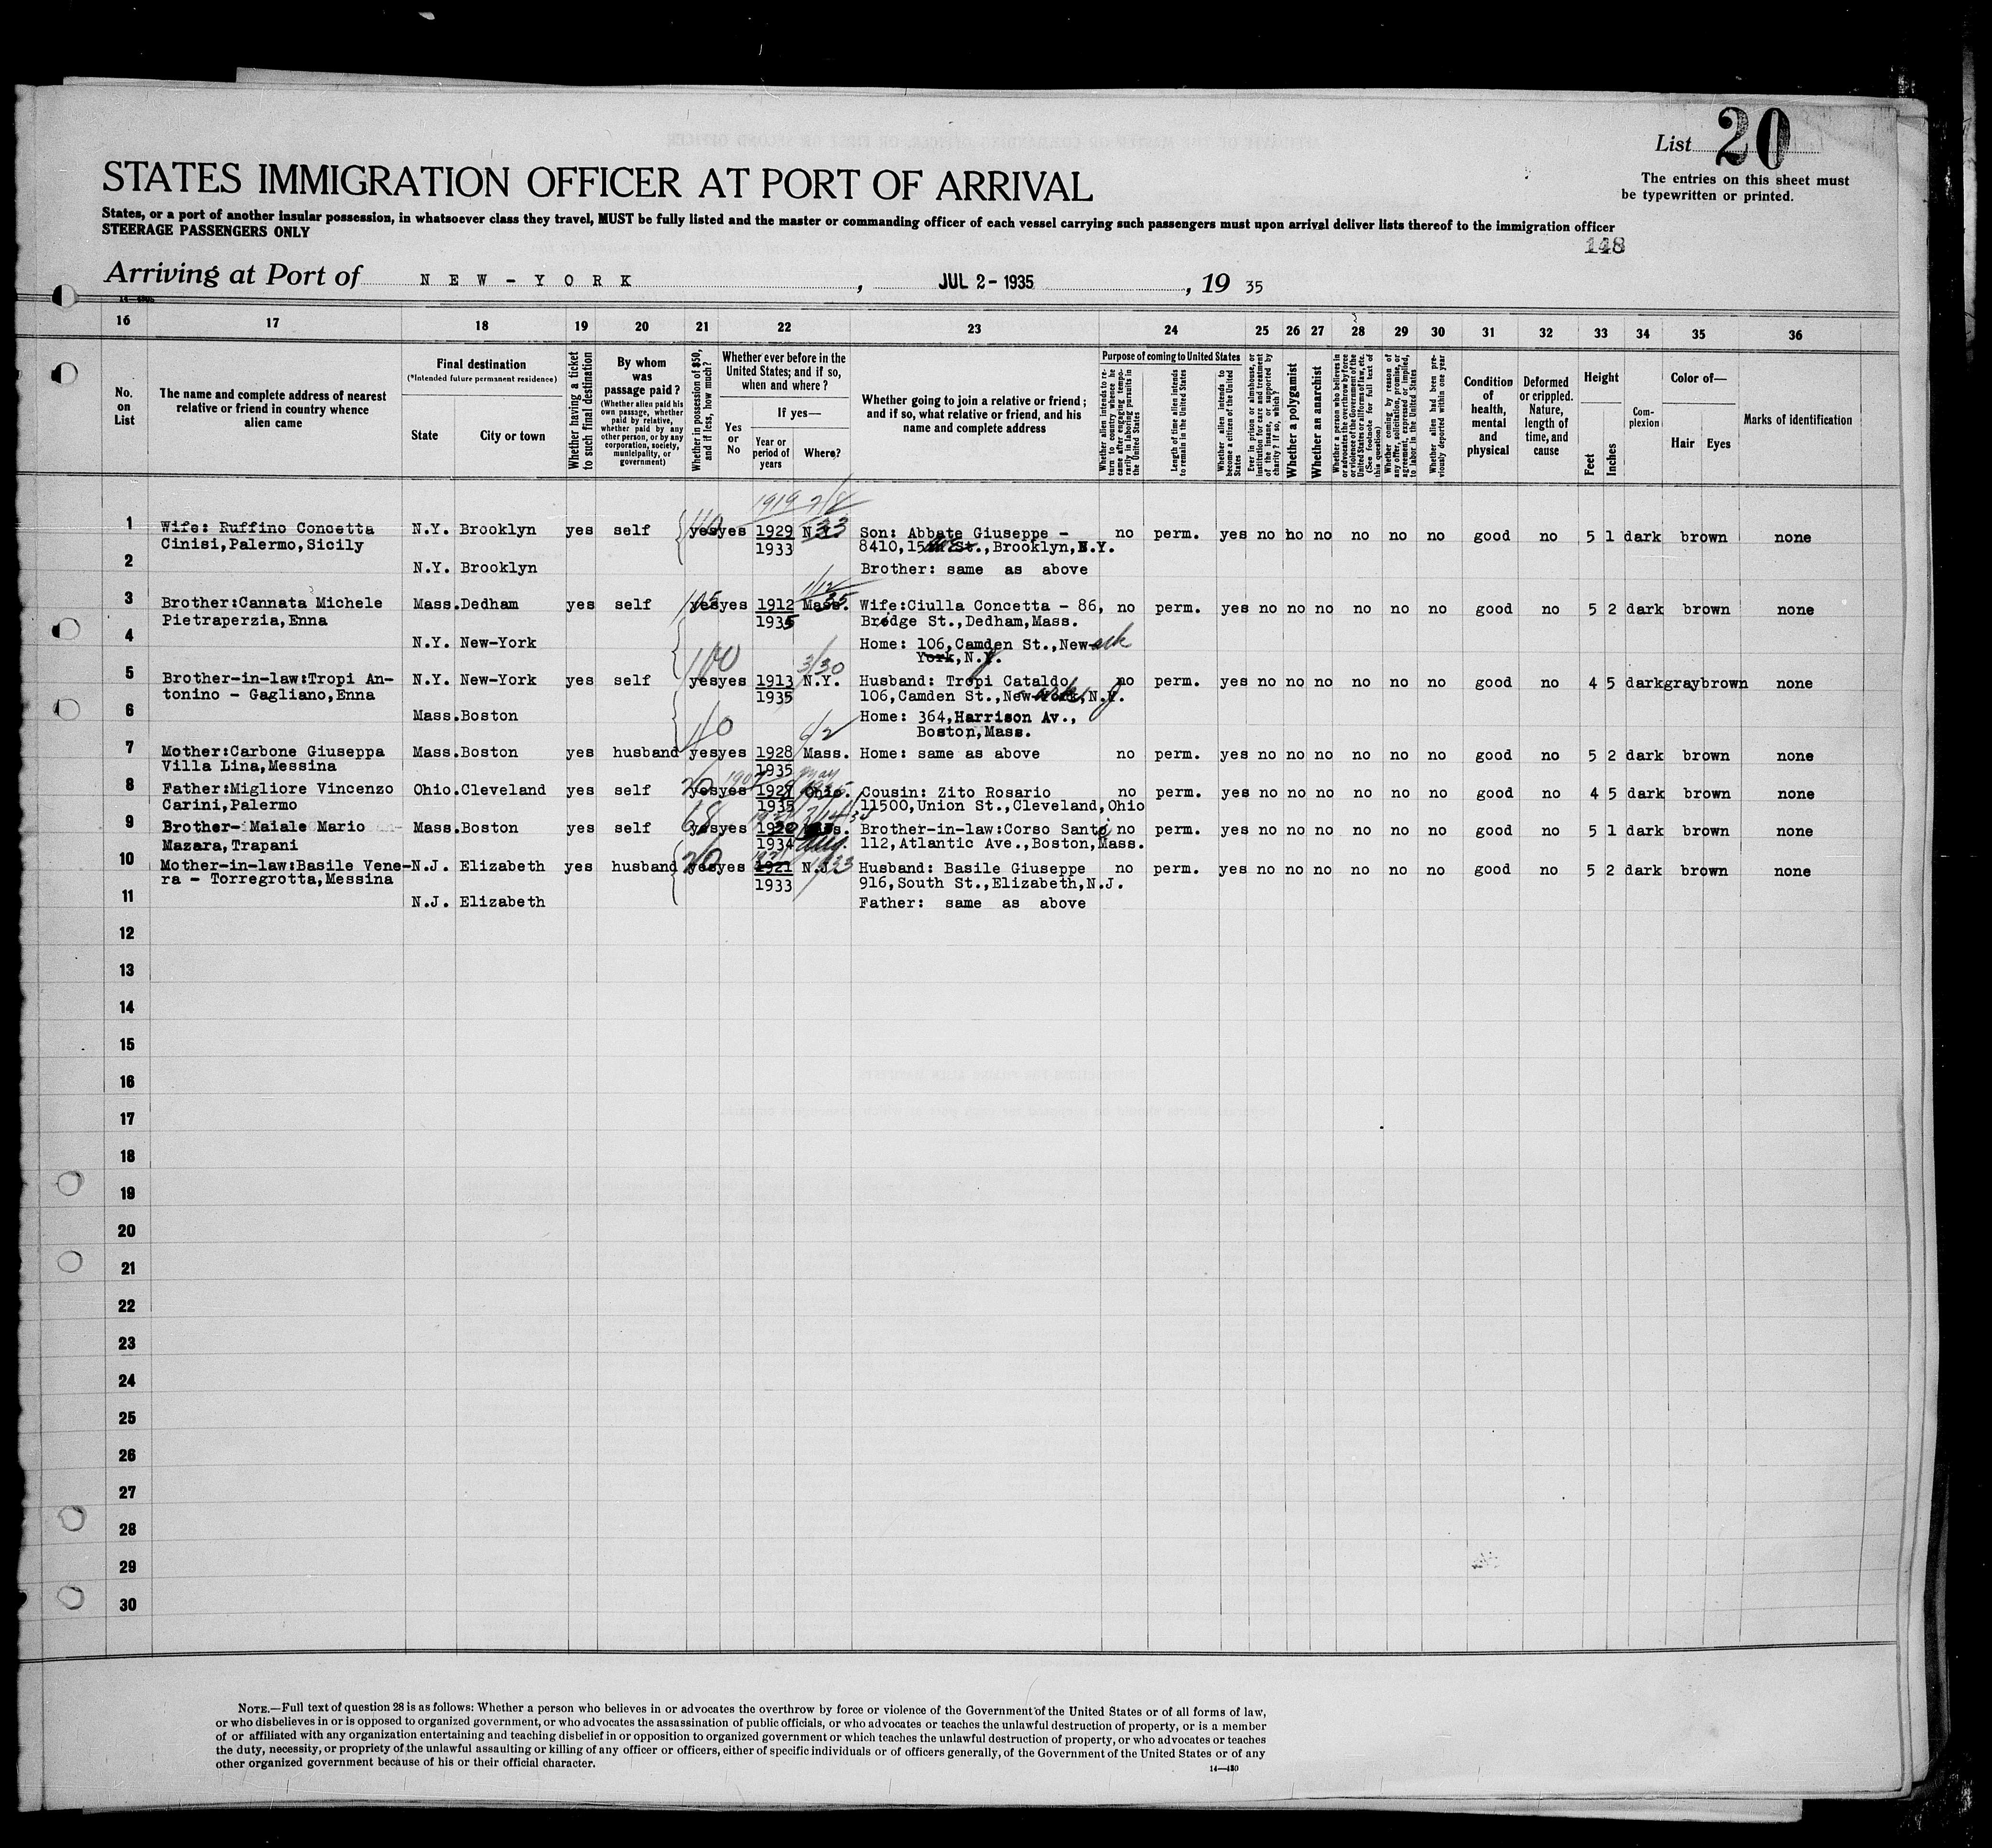 List 20
The entries on this sheet must
be typewritten or printed.
STATES IMMIGRATION OFFICER AT PORT OF ARRIVAL
States, or a port of another insular possession, in whatsoever class they travel, MUST be fully listed and the master or commanding officer of each vessel carrying such passengers must upon arrival deliver lists thereof to the immigration officer
STEERAGE PASSENGERS ONLY
148
Arriving at Port of NEW-YORK, JUL 2-1935, 19 35
16 17 18 19 20 21 22 23 24 25 26 27 28 29 30 31 32 33 34 35 36
No. on List
The name and complete address of nearest relative or friend in country whence alien came
Final destination
(*Intended future permanent residence)
State
City or town
Whether having a ticket to such final destination
By whom was passage paid?
(Whether alien paid his own passage, whether paid by relative, whether paid by any other person, or by any corporation, society, municipality, or government)
Whether in possession of $50, and if less, how much?
Whether ever before in the United States; and if so, when and where?
Yes or No
If yes—
Year or period of years
Where?
Whether going to join a relative or friend; and if so, what relative or friend, and his name and complete address
Purpose of coming to United States
Whether alien intends to return to country whence he came after engaging temporarily in laboring pursuits in the United States
Length of time alien intends to remain in the United States
Whether alien intends to become a citizen of the United States
Ever in prison or almshouse, or institution for care and treatment of the insane, or supported by charity? If so, which?
Whether a polygamist
Whether an anarchist
Whether a person who believes in or advocates the overthrow by force or violence of the Government of the United States or all forms of law, etc. (See footnote for full text of this question)
Whether coming by reason of any offer, solicitation, promise, or agreement, expressed or implied, to labor in the United States
Whether alien had been previously deported within one year
Condition of health, mental and physical
Deformed or crippled. Nature, length of time, and cause
Height
Feet
Inches
Complexion
Color of—
Hair
Eyes
Marks of identification
1919 7/8
1 Wife: Ruffino Concetta N.Y. Brooklyn yes self 110 yes yes 1929 N.Y. 33 Son: Abbate Giuseppe - no perm. yes no no no no no no good no 5 1 dark brown none
Cinisi,Palermo,Sicily 1933 8410,15 St.,Brooklyn,N.Y.
2 N.Y. Brooklyn Brother: same as above
1/12
3 Brother:Cannata Michele Mass. Dedham yes self yes yes 1912 Mass. 35 Wife:Ciulla Concetta - 86, no perm. yes no no no no no no good no 5 2 dark brown none
Pietraperzia,Enna 1935 Bridge St.,Dedham,Mass.
4 N.Y. New-York Home: 106,Camden St.,New-ark
York,N.J.
100 3/30
5 Brother-in-law:Tropi An- N.Y. New-York yes self yes yes 1913 N.Y. Husband: Tropi Cataldo no perm. yes no no no no no no good no 4 5 dark gray brown none
tonino - Gagliano,Enna 1935 106,Camden St.,New-ark,N.J.
6 Mass. Boston Home: 364,Harrison Av.,
Boston,Mass.
110 6/2
7 Mother:Carbone Giuseppa Mass. Boston yes husband yes yes 1928 Mass. Home: same as above no perm. yes no no no no no no good no 5 2 dark brown none
Villa Lina,Messina 1935 may
8 Father:Migliore Vincenzo Ohio. Cleveland yes self 20 yes yes Ohio. Cousin: Zito Rosario no perm. yes no no no no no no good no 4 5 dark brown none
Carini,Palermo 1935 11500,Union St.,Cleveland,Ohio
9 Brother- Maiale Mario Mass. Boston yes self 68 yes yes Mass. Brother-in-law:Corso Santo no perm. yes no no no no no no good no 5 1 dark brown none
Mazara,Trapani 1934 Aug. 112,Atlantic Ave.,Boston,Mass.
10 Mother-in-law:Basile Vene- N.J. Elizabeth yes husband 20 yes yes 1921 N.J. 1933 Husband: Basile Giuseppe no perm. yes no no no no no no good no 5 2 dark brown none
ra - Torregrotta,Messina 1933 916,South St.,Elizabeth,N.J.
11 N.J. Elizabeth Father: same as above
12
13
14
15
16
17
18
19
20
21
22
23
24
25
26
27
28
29
30
NOTE.—Full text of question 28 is as follows: Whether a person who believes in or advocates the overthrow by force or violence of the Government of the United States or of all forms of law,
or who disbelieves in or is opposed to organized government, or who advocates the assassination of public officials, or who advocates or teaches the unlawful destruction of property, or is a member
of or affiliated with any organization entertaining and teaching disbelief in or opposition to organized government or which teaches the unlawful destruction of property, or who advocates or teaches
the duty, necessity, or propriety of the unlawful assaulting or killing of any officer or officers, either of specific individuals or of officers generally, of the Government of the United States or of any
other organized government because of his or their official character.
14—430